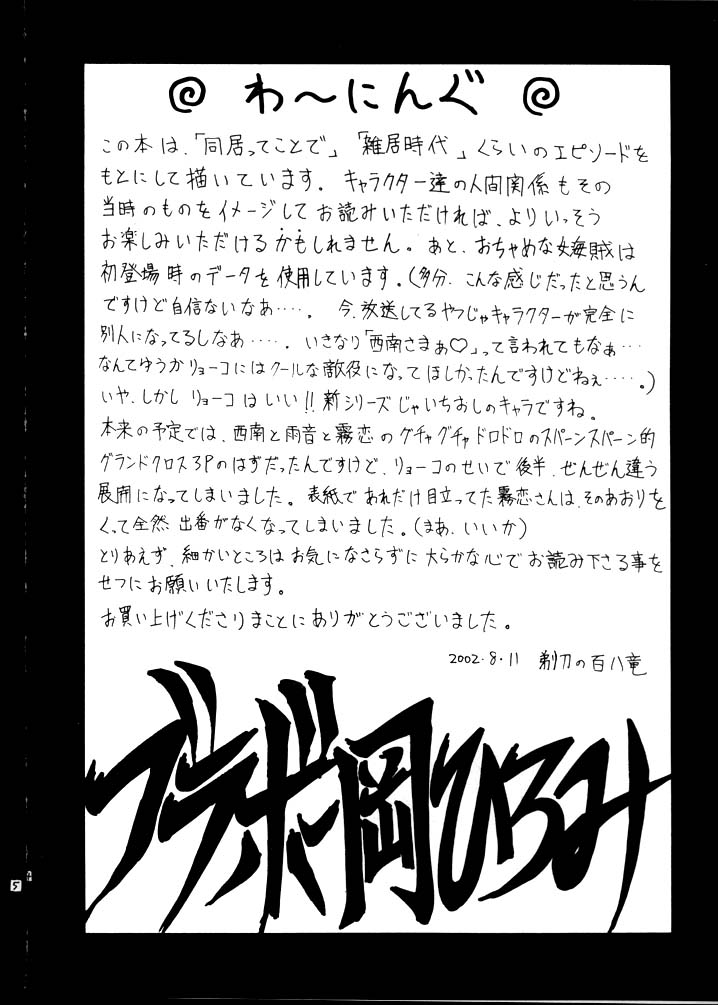 わ〜にんぐ
この本は、「同居ってことで」「雑居時代」くらいのエピソードを
もとにして描いています。キャラクター達の人間関係もその
当時のものをイメージしてお読みいただければ、よりいっそう
お楽しみいただけるかもしれません。あと、おちゃめな女海賊は
初登場時のデータを使用しています。(多分、こんな感じだったと思うん
ですけど自信ないなあ‥‥。今、放送してるやつじゃキャラクターが完全に
別人になってるしなあ‥‥。いきなり「西南さまぁ♡」って言われてもなぁ…
なんてゆうかリョーコにはクールな敵役になってほしかったんですけどねぇ‥‥。)
いや、しかしリョーコはいい!!新シリーズじゃいちおしのキャラですね。
本来の予定では、西南と雨音と霧恋のグチャグチャドロドロのスパーンスパーン的
グランドクロス3Pのはずだったんですけど、リョーコのせいで後半、ぜんぜん違う
展開になってしまいました。表紙であれだけ目立ってた霧恋さんは、そのあおりを
くって全然出番がなくなってしまいました。(まあ、いいか)
とりあえず、細かいところはお気になさらずに大らかな心でお読み下さる事を
せつにお願いいたします。
お買い上げくださりまことにありがとうございました。
2002.8.11 剃刀の百八竜
ブラボー岡ひろみ
5